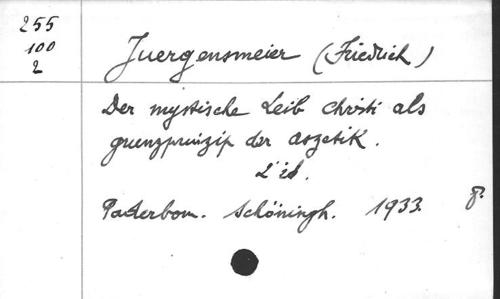 255
100
2
Juergensmeier (Friedrich)
Der mystische Leib Christi als
grenzprinzip der aszetik.
2° éd.
Paderborn. Schöningh. 1933. 8°.